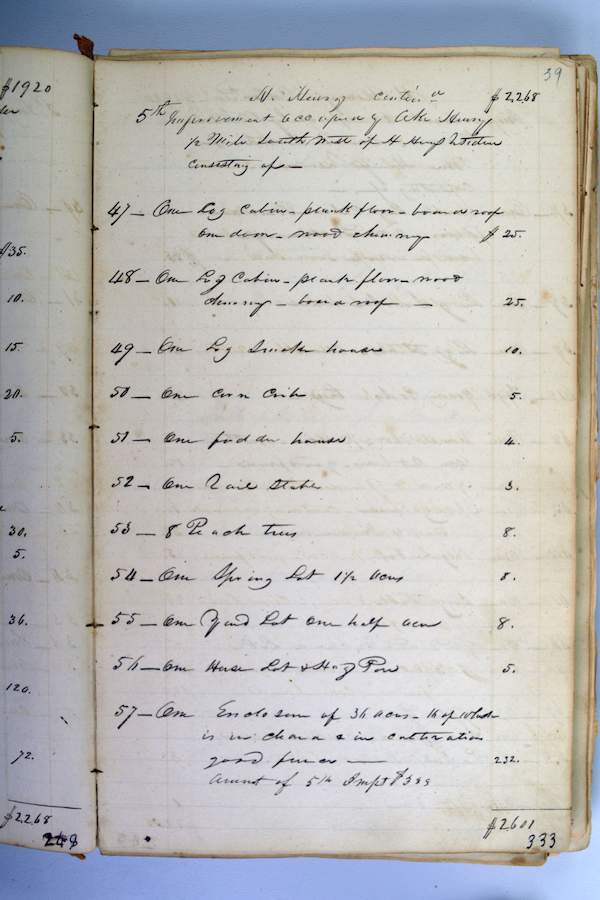 $1920
$35.
10.
15.
20.
5.
30.
5.
36.
120.
72.
$2268
248
39
H. Henry contin d $2268
5th Improvement occupied by Ake Henry
1/2 Mile South West of H Henry
Consisting of —
47 — One Log Cabin – plank floor – board roof
one door – wood chimney $25.
48 — One Log Cabin – plank floor – wood
chimney – board roof — 25.
49 — One Log Smoke house 10.
50 — One Corn Crib 5.
51 — One fodder house 4.
52 — One Rail Stable 3.
53 — 8 Peach trees 8.
54 — One Spring Lot 1 1/2 acres 8.
55 — One Yard Lot one half acre 8.
56 — One Horse Lot & Hog Pen 5.
57 — One Enclosure of 36 acres – 16 of which
is in & in cultivation
good fence — 232.
Amount of 5th Impt $333
$2601
333